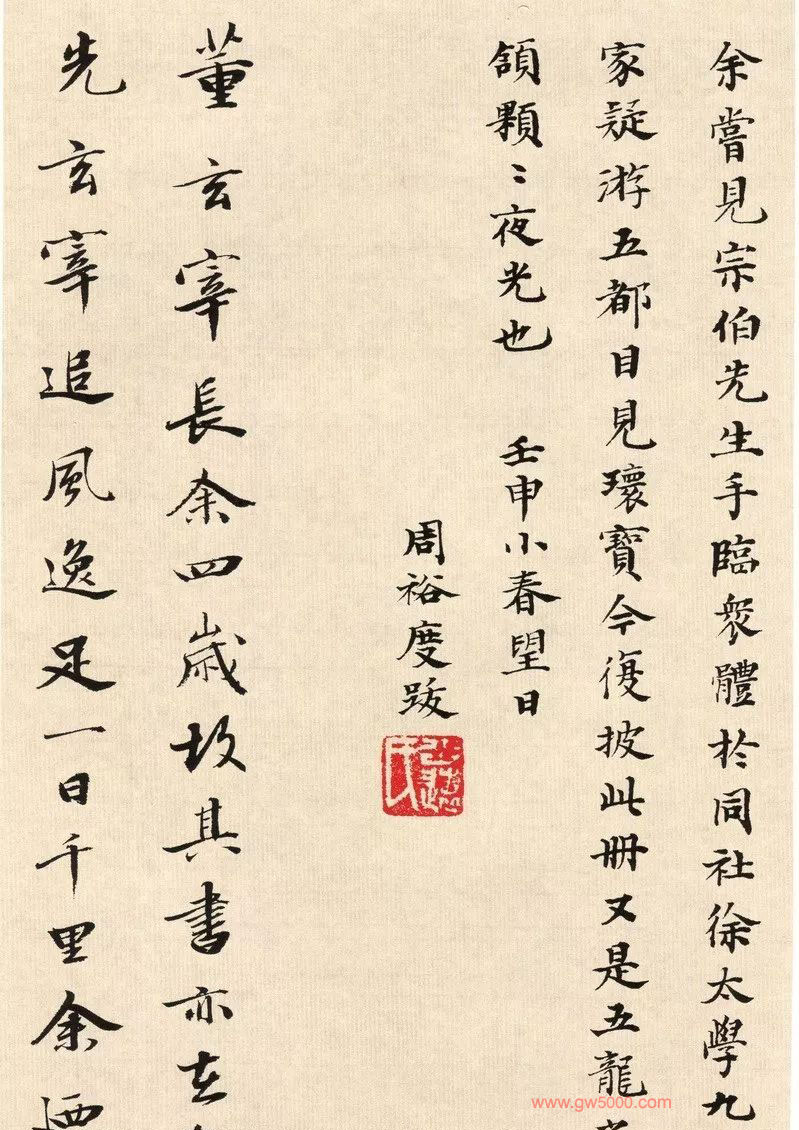 余嘗見宗伯先生手臨衆體於同社徐太學九
家疑游五都目見瓌寶今復披此冊又是五龍
頷顆〻夜光也 壬申小春望日
周裕度跋
董玄宰長余四歲故其書亦在
先玄宰追風逸足一日千里余
www.gw5000.com